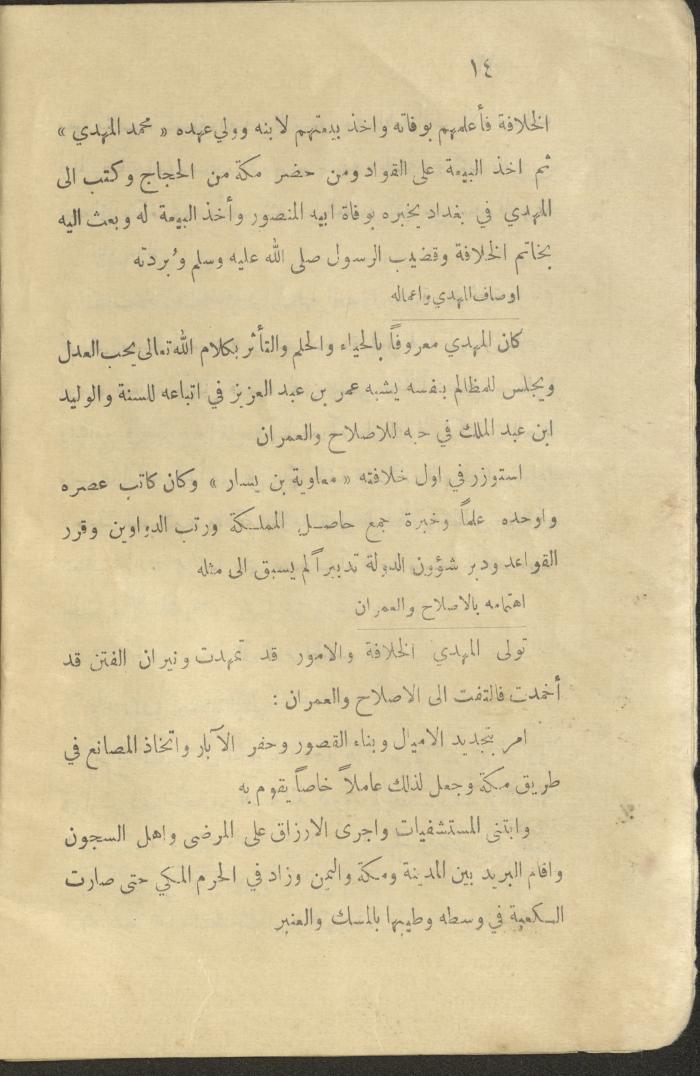 ١٤
الخلافة فأعلمهم بوفاته واخذ بيعتهم لابنه وولي عهده « محمد المهدي »
ثم اخذ البيعة على القواد ومن حضر مكة من الحجاج وكتب الى
المهدي في بغداد يخبره بوفاة ابيه المنصور وأخذ البيعة له وبعث اليه
بخاتم الخلافة وقضيب الرسول صلى الله عليه وسلم وبُردته
اوصاف المهدي واعماله
كان المهدي معروفاً بالحياء والحلم والتأثر بكلام الله تعالى يحب العدل
ويجلس للمظالم بنفسه يشبه عمر بن عبد العزيز في اتباعه للسنة والوليد
ابن عبد الملك في حبه للاصلاح والعمران
استوزر في اول خلافته « معاوية بن يسار » وكان كاتب عصره
واوحده علماً وخبرة جمع حاصل المملكة ورتب الدواوين وقرر
القواعد ودبر شؤون الدولة تدبيراً لم يسبق الى مثله
اهتمامه بالاصلاح والعمران
تولى المهدي الخلافة والامور قد تمهدت ونيران الفتن قد
أخمدت فالتفت الى الاصلاح والعمران :
امر بتجديد الاميال وبناء القصور وحفر الآبار واتخاذ المصانع في
طريق مكة وجعل لذلك عاملاً خاصاً يقوم به
وابتنى المستشفيات واجرى الارزاق على المرضى واهل السجون
واقام البريد بين المدينة ومكة واليمن وزاد في الحرم المكي حتى صارت
الكعبة في وسطه وطيبها بالمسك والعنبر